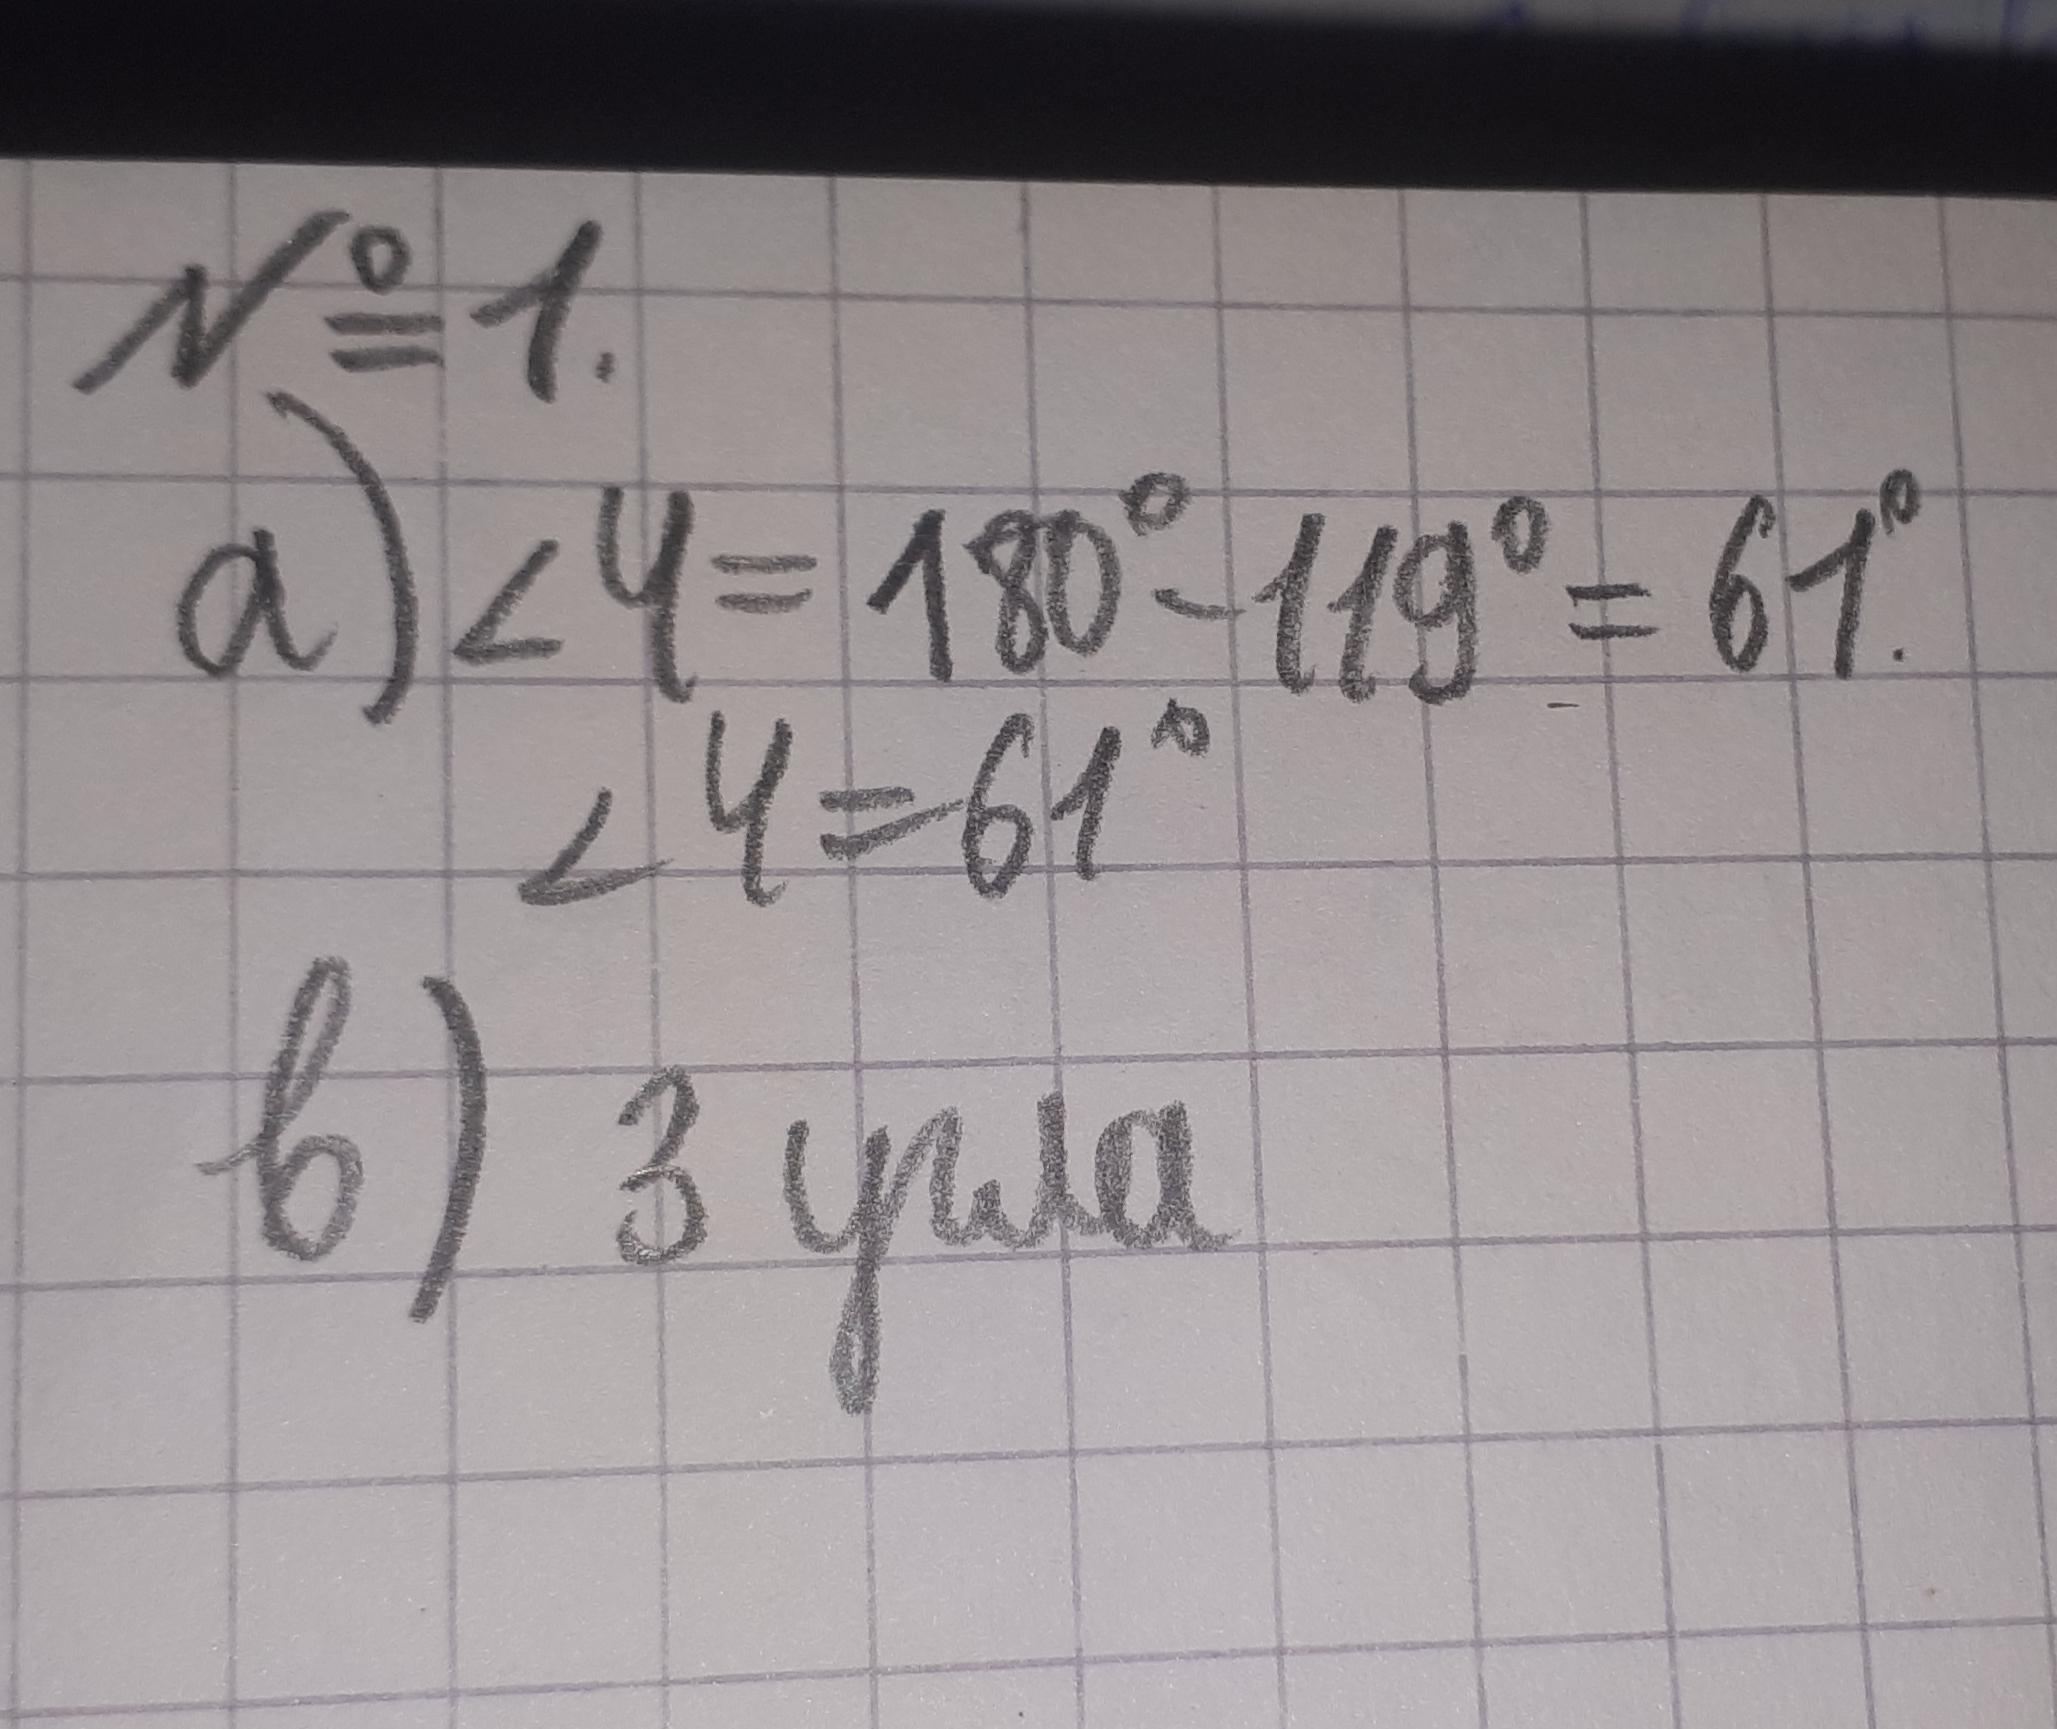 №1.
а) ∠4 = 180° - 119° = 61°.
∠4 = 61°
в) 3 угла